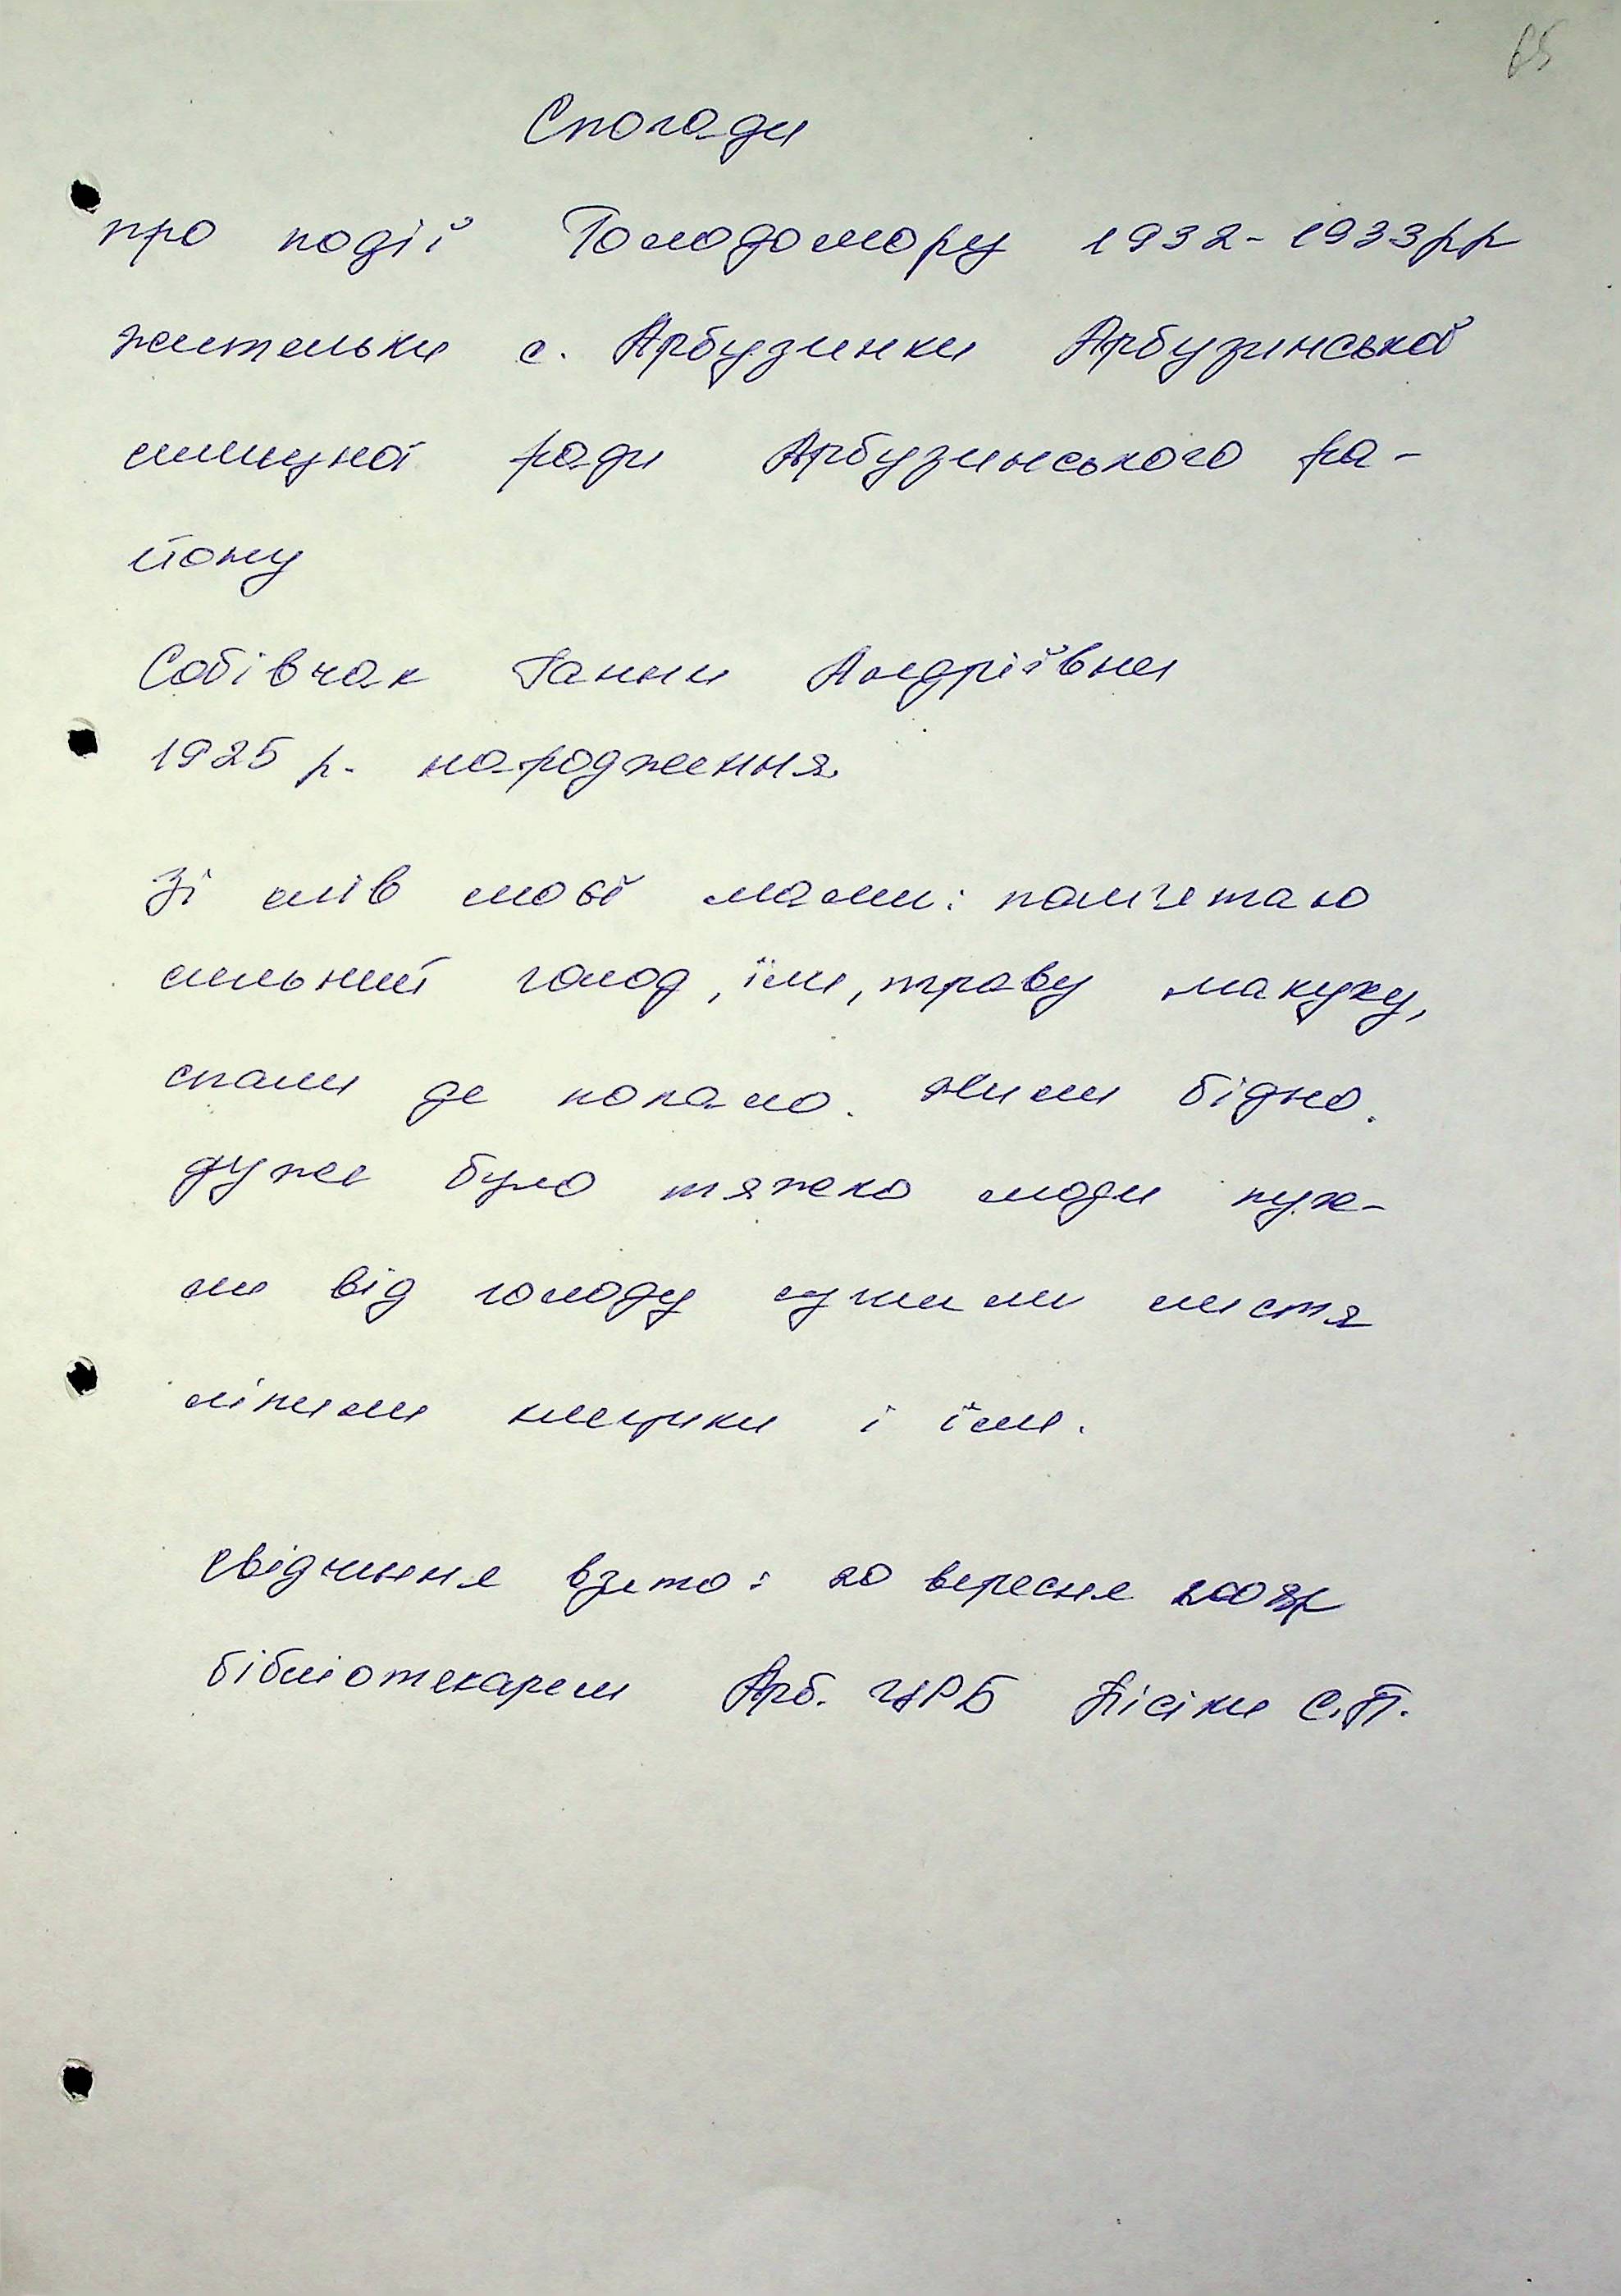 65
Спогади
про події Голодомору 1932-1933рр
жительки с. Арбузинки Арбузинської
селищної ради Арбузинського ра-
йону
Собівчак Ганни Андріївни
1925 р. народження.
Зі слів моєї мами: пам'ятаю
сильний голод, їли, траву макуху,
спали де попало. Жили бідно.
дуже було тяжко люди пух-
ли від голоду сушили листя
ліпили клецики і їли.
свідчення взято: 20 вересня 2008р
бібліотекарем Арб. ЦРБ С.П.